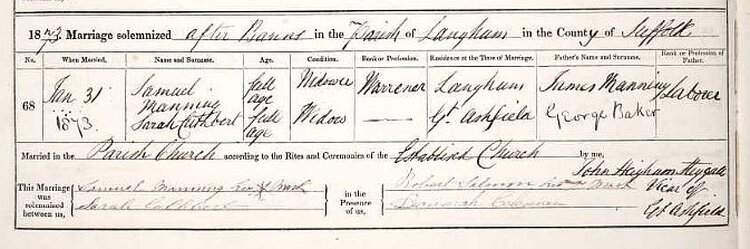 1873. Marriage solemnized after Banns in the Parish of Langham in the County of Suffolk
No. When Married. Name and Surname. Age. Condition. Rank or Profession. Residence at the Time of Marriage. Father's Name and Surname. Rank or Profession of Father.
68 Jan 31 1873. Samuel Manning full age Widower Warrener Langham James Manning Laborer
Sarah Cuthbert full age Widow — Gt. Ashfield George Baker
Married in the Parish Church according to the Rites and Ceremonies of the Establisd Church by me,
John Heigham
Vicar of
Gt Ashfield
This Marriage was solemnized between us, Samuel Manning his X Mark in the Presence of us, Robert his X Mark
Sarah Cuthbert